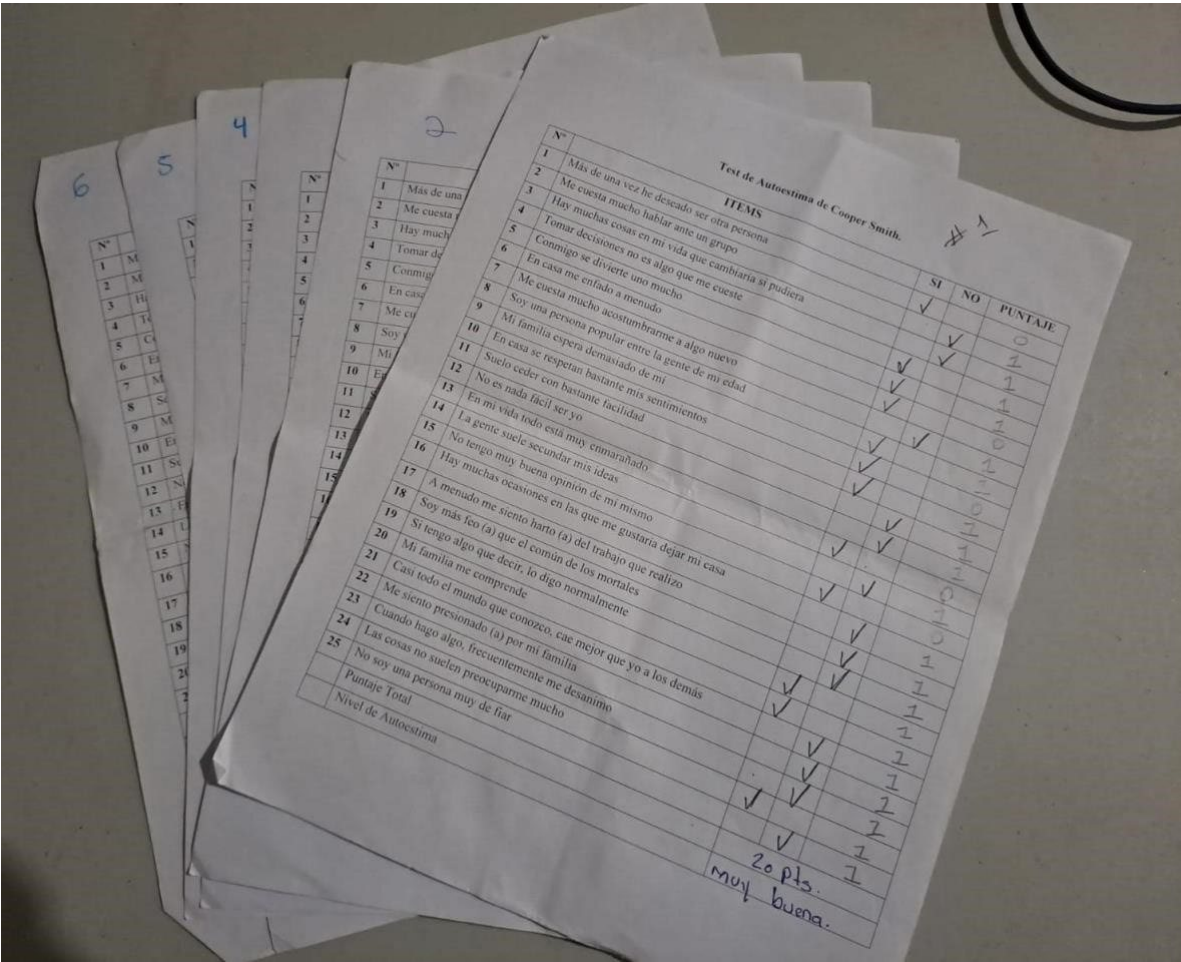 6
5
4
2
# 1
Test de Autoestima de Cooper Smith.
N° ITEMS SI NO PUNTAJE
1 Más de una vez he deseado ser otra persona 0
2 Me cuesta mucho hablar ante un grupo 1
3 Hay muchas cosas en mi vida que cambiaria si pudiera 1
4 Tomar decisiones no es algo que me cueste 1
5 Conmigo se divierte uno mucho 1
6 En casa me enfado a menudo 0
7 Me cuesta mucho acostumbrarme a algo nuevo 1
8 Soy una persona popular entre la gente de mi edad 1
9 Mi familia espera demasiado de mi 0
10 En casa se respetan bastante mis sentimientos 1
11 Suelo ceder con bastante facilidad 1
12 No es nada fácil ser yo 1
13 En mi vida todo está muy enmarañado 0
14 La gente suele secundar mis ideas 1
15 No tengo muy buena opinión de mi mismo 0
16 Hay muchas ocasiones en las que me gustaria dejar mi casa 1
17 A menudo me siento harto (a) del trabajo que realizo 1
18 Soy más feo (a) que el común de los mortales 1
19 Si tengo algo que decir, lo digo normalmente 1
20 Mi familia me comprende 1
21 Casi todo el mundo que conozco, cae mejor que yo a los demás 1
22 Me siento presionado (a) por mi familia 1
23 Cuando hago algo, frecuentemente me desanimo 1
24 Las cosas no suelen preocuparme mucho 1
25 No soy una persona muy de fiar 1
Puntaje Total 20 pts.
Nivel de Autoestima muy buena.
N°
1 Más de una
2 Me cuesta
3 Hay much
4 Tomar de
5 Conmig
6 En casa
7 Me cu
8 Soy
9 Mi
10
11
12
13
14
15
N°
1
2
3
4
5
6
7
N°
1 M
2 M
3
4
5
6
7 M
8
9 M
10
11
12
13
14
15
16
17
18
19